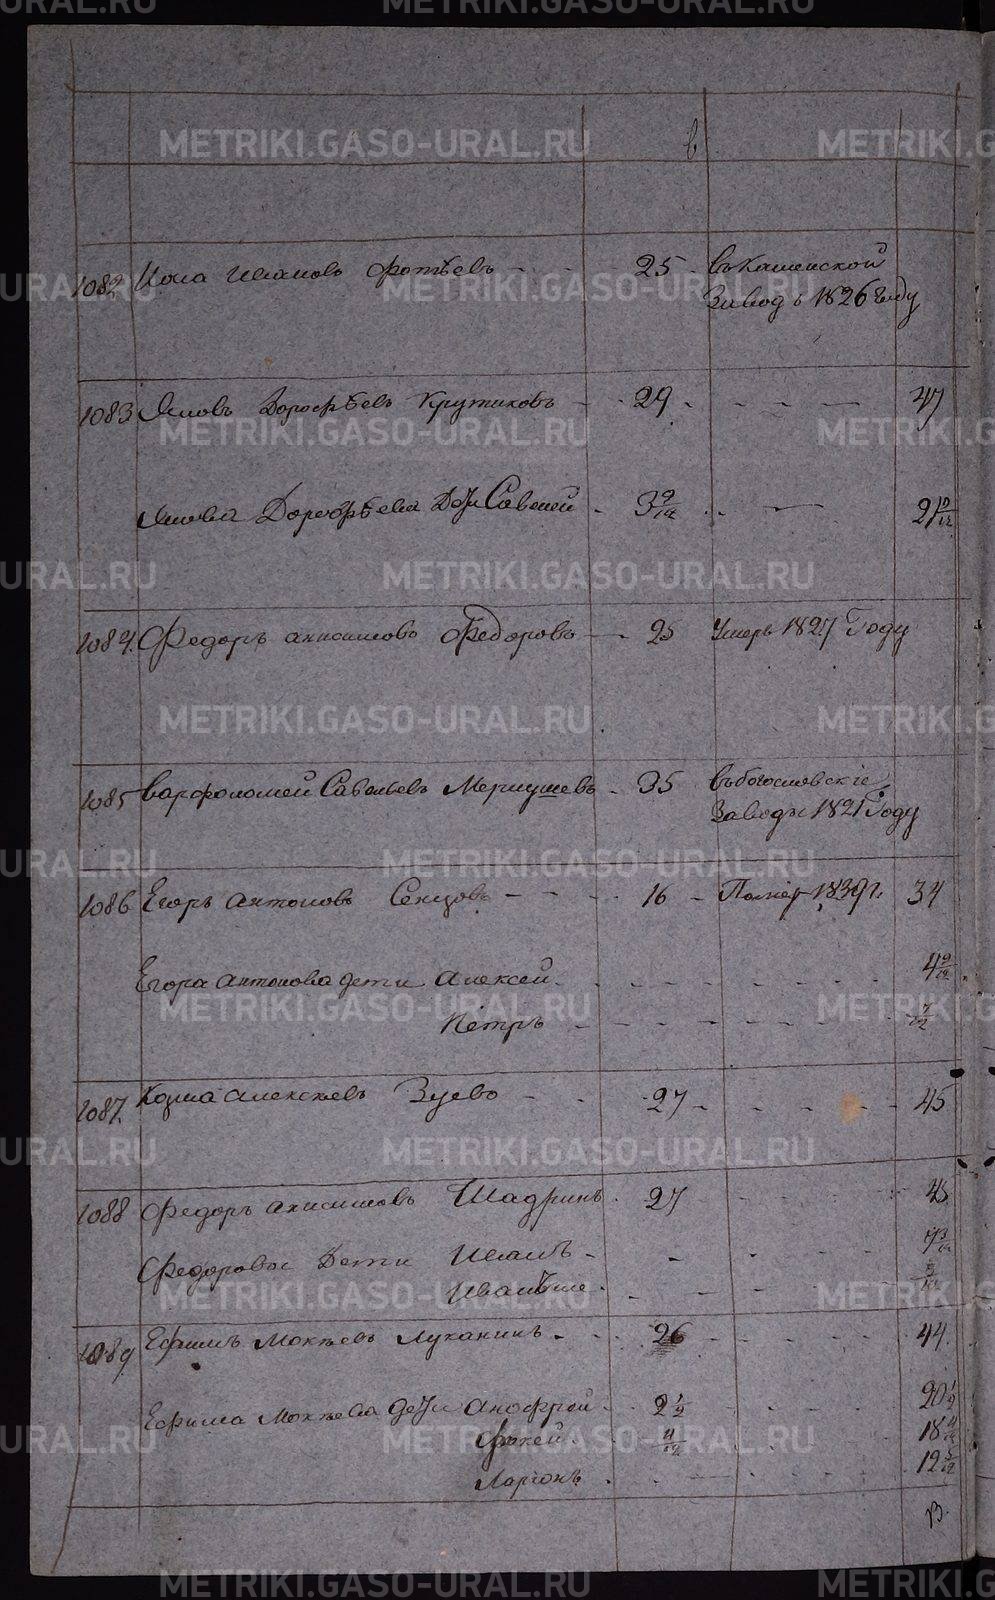 в
1082 Иона Ивановъ Фотѣевъ - - 25 - въ Каменской
Заводъ 1826 Году
1083 Яковъ Дорофѣевъ Крутиковъ - 29 - - - 47
Якова Дорофѣева Дѣти Савелей - 3 9/12 - - 21 9/12
1084 Федоръ Анисимовъ Федоровъ - 25 Умеръ 1827 Году
1085 Варфоломей Савельевъ Мернушевъ - 35 въ Богословскіе
Заводы 1821 Году
1086 Егоръ Антоновъ Сенцовъ - - - 16 - Помер 1839 г. 34
Егора Антонова дети Алексей - - - 4 9/12
Петръ - - - 7/12
1087 Козма Алексѣевъ Зуевъ - - 27 - - - 45
1088 Федоръ Анисимовъ Шадринъ - 27 - - - 45
Федоровы Дети Иванъ - - - 7 3/12
- - -
1089 Ефимъ Мокѣевъ Луканинъ - - 26 - - - 44
Ефима Мокѣева дети Анофрей - 2 1/2 - - 20 1/2
Фокей 4/12 - - 18 4/12
Ларіонъ - - - 12 5/12
В.
METRIKI.GASO-URAL.RU